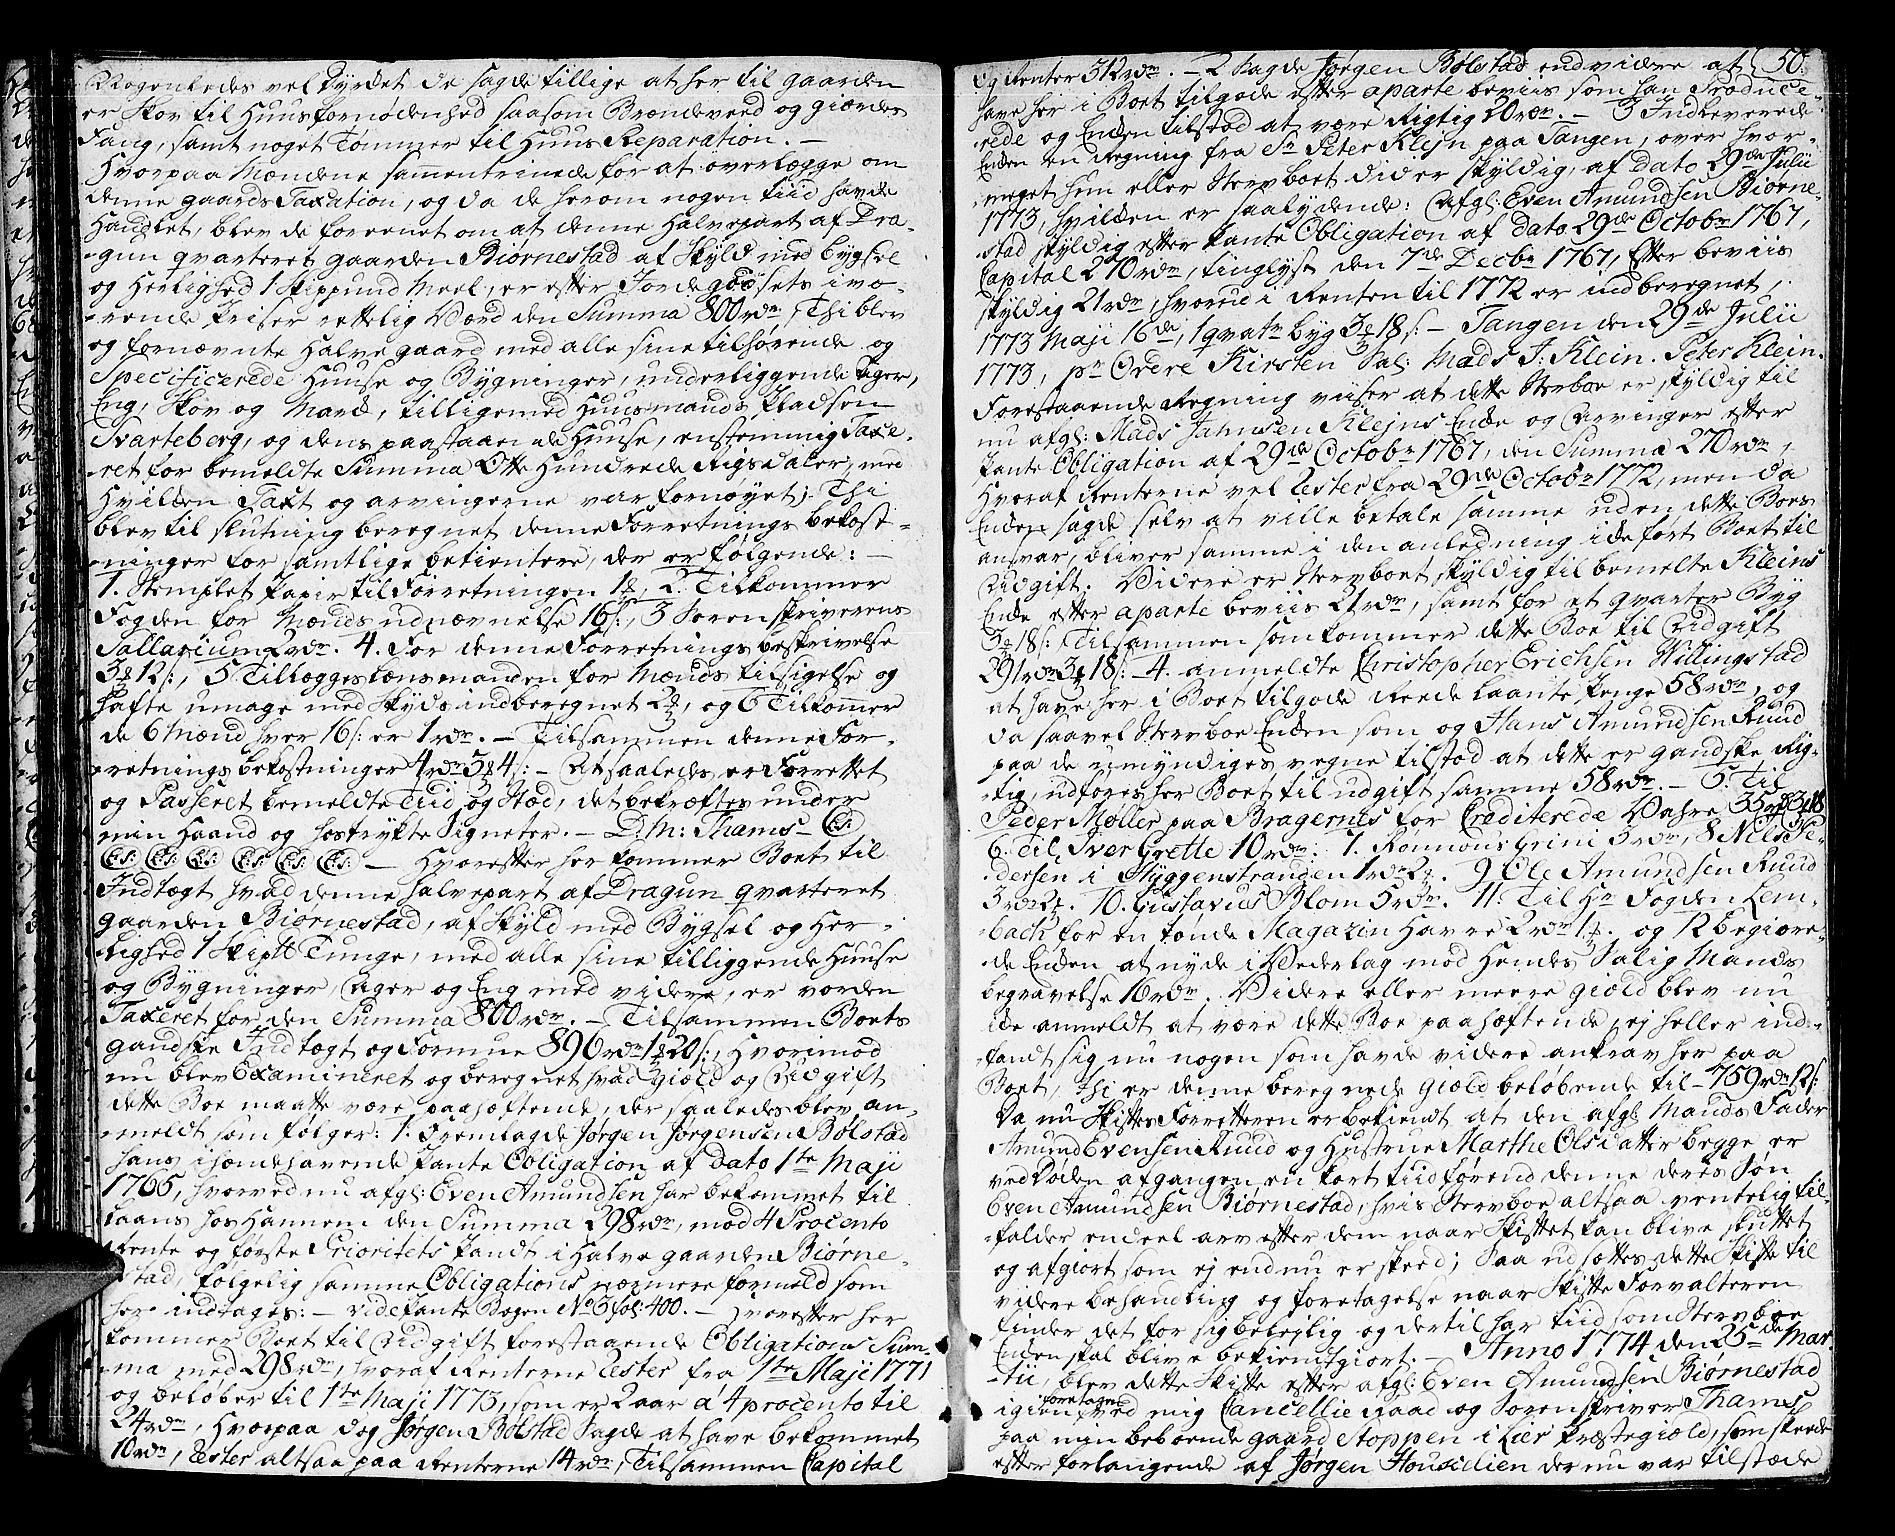 Rogenledes vel dyrdet de sagde tillige at her til gaarden
er Skov til Huusfornødenhed saasom Brændeveed og giærdes
Fang, samt noget Tømmer til Huus Reparation. —
Hvorpaa Mændene sammentrinede for at overlægge om
denne gaards Taxation, og da de herom nogen tiid havde
Handlet, blev de foreenet om at denne Halvepart af Dra-
gun qvarteret gaarden Biørnestad af Skyld med bygsel
og Herlighed 1 Skippund Meel, er efter Jordegodsets ivæ-
rende Priser rettelig Værd den Summa 800 rdr, Thi blev
og fornævnte Halve gaard med alle sine tilhørende og
Specificerede Huuse og Bygninger, underliggende Ager,
Eng, Skov og Mark, tilligemed Huusmands Pladsen
Svarteberg, og dens paastaaende Huuse, enstemmig Taxe-
ret for bemeldte Summa Otte Hundrede Rigsdaler, med
Hvilken Taxt og arvingerne var fornøyet; Thi
blev til slutning beregnet denne Forretnings bekost-
ninger for samtlige betientere, der er følgende: —
1. Stemplet Papir til Forretningen 1, 2. Tilkommer
Fogden for Mænds udnævnelse 16 s:, 3 Sorenskriverens
Sallarium 2 rdr. 4. For denne Forretnings beskrivelse
3 12 s:, 5 Tillæggeslensmanden for Mænds tilsigelse og
hafte umage med Skyds indberegnet 2, og 6 Tilkommer
de 6 Mænd hver 16 s: er 1 rdr. — Tilsammen denne For-
retnings bekostninger 4 rdr 5 4 s: — At saaledes er Forrettet
og Passeret bemeldte Tiid og Stæd, det bekræftes under
min Haand og hostrykte Signeter. — D. M: Thams (LS:)
(LS:) (LS:) (LS:) (LS:) (LS:) (LS:) — Hvorefter her kommer Boet til
Indtægt hvad denne halvepart af Dragun qvarteret
gaarden Biørnestad, af Skyld med Bygsel og Her-
lighed 1 Skiptt Tunge, med alle sine tilliggende Huuse
og Bygninger, Ager og Eng med videre, er vorden
Taxeret for den Summa 800 rdr. — Tilsammen Boets
gandske Indtægt og Formue 896 rdr 1 20 s:, Hvorimod
nu blev Examineret og beregnet hvad Giæld og Udgift
dette Boe maatte være paahæftende, der saaledes blev an-
meldt som følger: 1. Fremlagde Jørgen Jørgensen Bølstad
hans ihændehavende Pante Obligation af dato 1te Maji
1765, hvorved nu afgl: Even Amundsen har bekommet til
laans hos Hannem den Summa 298 rdr, mod 4 Procento
Rente og første Prioritets Pandt i Halve gaarden Biørne-
stad, følgelig samme Obligations nærmere formeld som
her indtages: — vide Pante Bogen No 3 fol: 400. — Hvorefter her
kommer Boet til Udgift forestaaende Obligations Sum-
ma med 298 rdr, hvoraf Renterne Rester fra 1te Maji 1771
og beløber til 1te Maji 1773, som er 2 aar á 4 procento til
24 rdr, Hvorpaa dog Jørgen Bølstad Sagde at have bekommet
10 rdr, Rester altsaa paa Renterne 14 rdr, Tilsammen Capital
og Renter 312 rdr. — 2 Sagde Jørgen Bølstad endvidere at 50.
have her i Boet tilgode efter aparte beviis som han Produce-
rede og Enken tilstod at være Rigtig 20 rdr. — 3 Indleverede
Enken en Regning fra Sr Peter Klejn paa Tangen, over hvor-
meget hun eller Stervboet vider skyldig, af dato 29de Julii
1773, hvilken er saalydende: Afgl: Even Amundsen Biørne-
stad skyldig efter Pante Obligation af Dato 29de Octobr 1767,
Capital 270 rdr, tinglyst den 7de Decbr 1767, Efter beviis
skyldig 21 rdr, hvorudi Renten til 1772 er indberegnet,
1773 Maji 16de, 1 qvatr byg 3 18 s: — Tangen den 29de Julii
1773, pr Ordre Kirsten Sal: Mads J: Klein. Peter Klein.
Forestaaende Regning viiser at dette Stervboe er skyldig til
nu afgl: Mads Jahnsen Klejns Enke og Arvinger efter
Pante Obligation af 29de Octobr 1767, den Summa 270 rdr,
Hvoraf Renterne vel Rester fra 29de Octobr 1772, men da
Enken sagde selv at ville betale samme uden dette Boes
ansvar, bliver samme i den anledning ide ført Boet til
Udgift. Videre er Stervboet skyldig til bemelte Kleins
Enke efter aparte beviis 21 rdr, samt for et qvarter Byg
3 18 s: Tilsammen som kommer dette Boe til Udgift
291 rdr 3 18 s: — 4. anmeldte Christopher Erichsen Willingstad
at have her i Boet tilgode Reede laante Penge 58 rdr, og
da saavel Stervboe Enken som og Hans Amundsen Ruud
paa de umyndiges vegne tilstod at dette er gandske Rig-
tig, udføres her Boet til udgift samme 58 rdr. — 5. Til
Peder Møller paa Bragernes for Crediterede Vahre 35 rdr 3 18
6. Til Iver Grette 10 rdr. 7. Rønnous Grini 3 rdr, 8 Niels Pe-
dersen i Gyggenstranden 1 rdr 2. 9 Ole Amundsen Ruud
3 rdr 2. 10. Gustavus Blom 5 rdr. 11. Til Hr Fogden Lem-
bach for en tønde Magazin Havre 2 rdr 1. og 12 begiøre-
de Enken at nyde i Vederlag mod Hendes Salig Mands
begravelse 16 rdr. Videre eller meere giæld blev nu
ide anmeldt at være dette Boe paahæftende, ej heller ind-
fandt sig nu nogen som havde videre ankrav her paa
Boet, thi er denne beregnede Giæld beløbende til — 759 rdr 12 s:
Da nu Skifte Forretteren er bekiendt at den afgl: Mands Fader
Amund Evensen Ruud og Hustrue Marthe Olsdatter begge er
ved Døden afgangen en kort tiid førend denne deres Søn
Even Amundsen Biørnestad, hvis Stervboe altsaa ventelig til-
falder endeel arv efter dem naar Skiftet kan blive sluttet
og afgiort som ej end nu er skeed; Saa udsættes dette Skifte til
videre behandling og foretagelse naar Skifte Forvalteren
finder det for sig belejlig og dertil har tiid som Stervboe
Enken skal blive bekiendtgiort. — Anno 1774 den 25de Mar-
tii, blev dette Skifte efter afgl: Even Amundsen Biørnestad
igien foretagen ved mig Cancellie Raad og Sorenskriver Thams
paa min beboende gaard Stoppen i Lier Præstegield, som skeede
efter forlangende af Jørgen Housdlien der nu var tilstæde